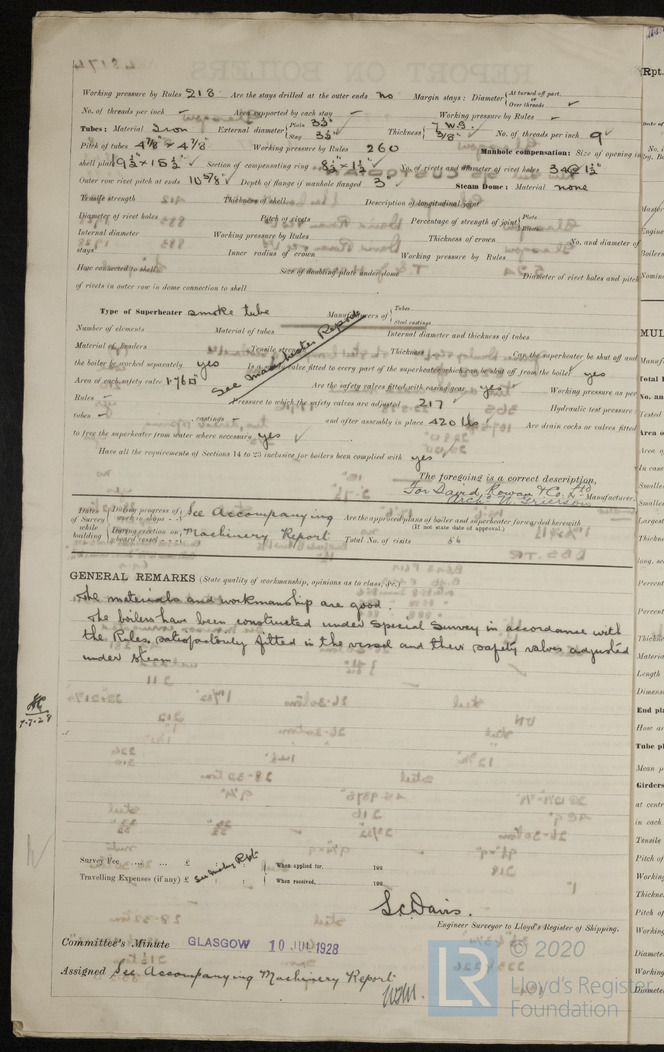 Working pressure by Rules 218 Are the stays drilled at the outer ends no Margin stays: Diameter { At turned off part, or Over threads
No. of threads per inch - Area supported by each stay - Working pressure by Rules -
Tubes: Material Iron External diameter { Plain 3¼" Stay 3¼" Thickness { 7 W.G. 5/16" No. of threads per inch 9
Pitch of tubes 4⅜" × 4⅜" Working pressure by Rules 260 Manhole compensation: Size of opening in
shell plate 19½" × 15½" Section of compensating ring No. of rivets and diameter of rivet holes
Outer row rivet pitch at ends 10⅝" Depth of flange if manhole flanged 3" Steam Dome: Material none
Tensile strength Thickness of shell Description of longitudinal joint
Diameter of rivet holes Pitch of rivets Percentage of strength of joint { Plate Rivets
Internal diameter Working pressure by Rules Thickness of crown No. and diameter of
stays Inner radius of crown Working pressure by Rules
How connected to shell Size of doubling plate under dome Diameter of rivet holes and pitch
of rivets in outer row in dome connection to shell
Type of Superheater smoke tube Manufacturers of { Tubes Steel castings
Number of elements Material of tubes Internal diameter and thickness of tubes
Material of headers Tensile strength Thickness Can the superheater be shut off and
See Manchester Reports
the boiler be worked separately yes Is a safety valve fitted to every part of the superheater which can be shut off from the boiler yes
Area of each safety valve 1.76 □" Are the safety valves fitted with easing gear yes Working pressure as per
Rules - Pressure to which the safety valves are adjusted 217 Hydraulic test pressure
tubes - castings - and after assembly in place 420 lbs Are drain cocks or valves fitted
to free the superheater from water where necessary yes
Have all the requirements of Sections 14 to 23 inclusive for boilers been complied with yes
The foregoing is a correct description,
For David Rowan & Co. Ltd Manufacturer.
Arch. W. Grierson
Dates of Survey while building { During progress of work in shops - - See Accompanying Are the approved plans of boiler and superheater forwarded herewith
(If not state date of approval.)
During erection on board vessel - - Machinery Report Total No. of visits 56
GENERAL REMARKS (State quality of workmanship, opinions as to class, &c.)
The materials and workmanship are good.
The boilers have been constructed under Special Survey in accordance with
the Rules, satisfactorily fitted in the vessel and their safety valves adjusted
under steam
7.7.28
Survey Fee ... ... £ See Mchy Rpt. When applied for, 192
Travelling Expenses (if any) £ When received, 192
S.C. Davis.
Engineer Surveyor to Lloyd's Register of Shipping.
Committee's Minute GLASGOW 10 JUL 1928
Assigned See Accompanying Machinery Report
LR © 2020
Lloyd's Register
Foundation